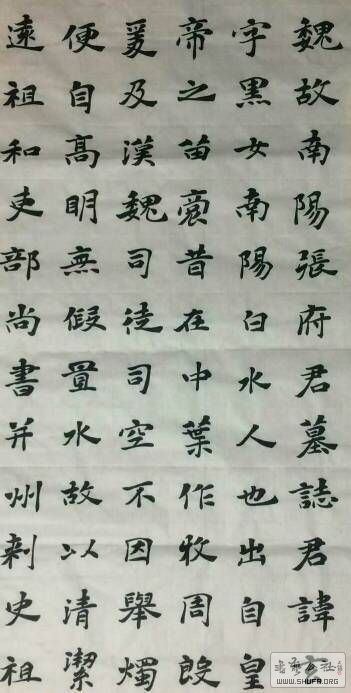 魏故南陽張府君墓誌君諱玄
字黑女南陽白水人也出自皇
帝之苗裔昔在中葉作牧周殷
爰及漢魏司徒司空不因舉燭
便自高明無假置水故以清潔
遠祖和吏部尚書并州刺史祖
WWW.SHUFA.ORG